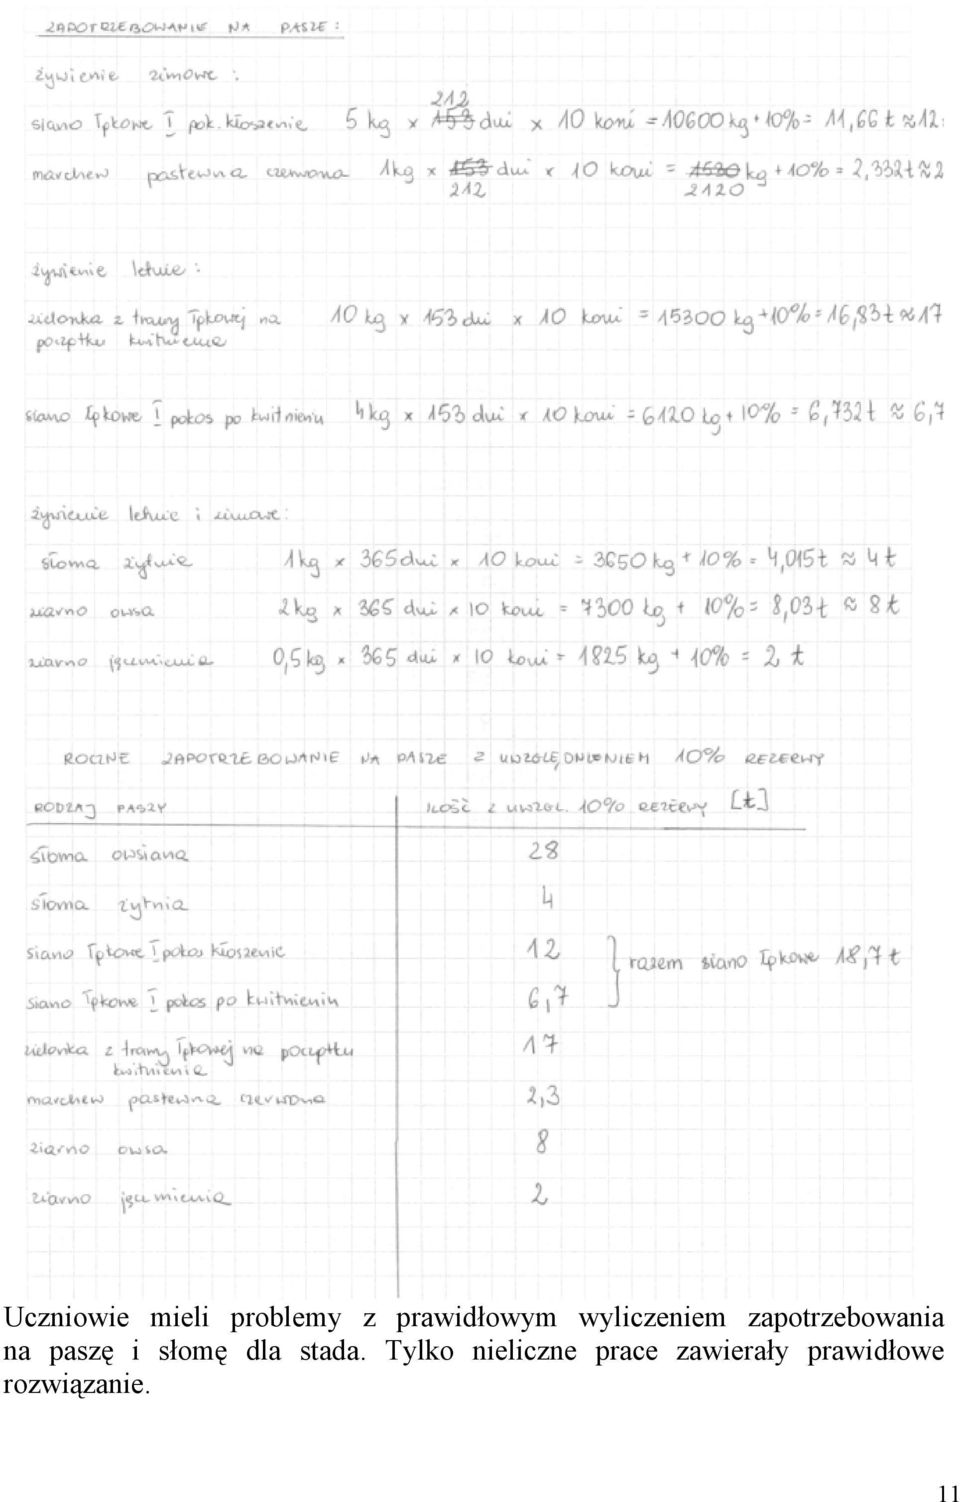 ZAPOTRZEBOWANIE NA PASZE :
żywienie zimowe :
siano łąkowe I pok. kłoszenie 5 kg x 153 212 dni x 10 koni = 10600 kg + 10% = 11,66 t ≈ 12
marchew pastewna czerwona 1kg x 153 212 dni x 10 koni = 1530 2120 kg + 10% = 2,332t ≈ 2
żywienie letnie :
zielonka z trawy łąkowej na 10 kg x 153 dni x 10 koni = 15300 kg + 10% = 16,83 t ≈ 17
początku kwitnienia
siano łąkowe I pokos po kwitnieniu 4 kg x 153 dni x 10 koni = 6120 kg + 10% = 6,732 t ≈ 6,7
żywienie letnie i zimowe:
słoma żytnia 1 kg x 365 dni x 10 koni = 3650 kg + 10% = 4,015 t ≈ 4 t
ziarno owsa 2 kg x 365 dni x 10 koni = 7300 kg + 10% = 8,03 t ≈ 8 t
ziarno jęczmienia 0,5 kg x 365 dni x 10 koni = 1825 kg + 10% = 2 t
ROCZNE ZAPOTRZEBOWANIE NA PASZE Z UWZGLĘDNIENIEM 10% REZERWY
RODZAJ PASZY ILOŚĆ Z UWZGL. 10% REZERWY [t]
słoma owsiana 28
słoma żytnia 4
siano łąkowe I pokos kłoszenie 12
razem siano łąkowe 18,7 t
siano łąkowe I pokos po kwitnieniu 6,7
zielonka z trawy łąkowej na początku 17
kwitnienia
marchew pastewna czerwona 2,3
ziarno owsa 8
ziarno jęczmienia 2
Uczniowie mieli problemy z prawidłowym wyliczeniem zapotrzebowania
na paszę i słomę dla stada. Tylko nieliczne prace zawierały prawidłowe
rozwiązanie.
11